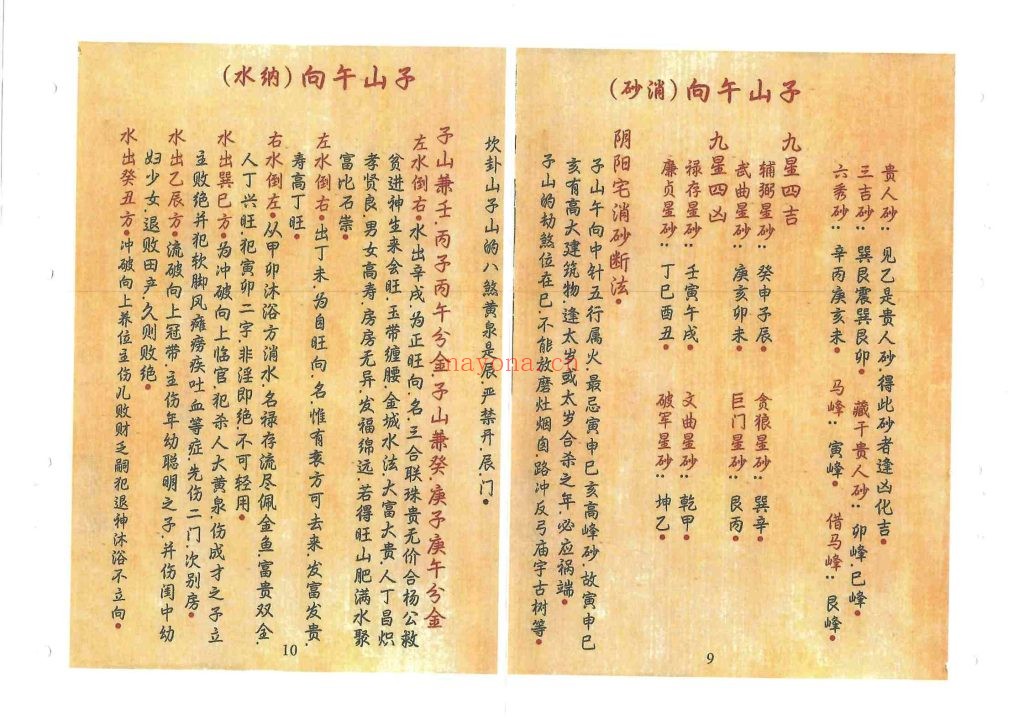 子山午向(消砂)
贵人砂：见乙是贵人砂.得此砂者逢凶化吉.
三吉砂：巽艮震巽艮卯. 藏干贵人砂：卯峰.巳峰.
六秀砂：辛丙庚亥未. 马峰：寅峰. 借马峰：艮峰.
九星四吉
辅弼星砂：癸申子辰. 贪狼星砂：巽辛.
武曲星砂：庚亥卯未. 巨门星砂：艮丙.
九星四凶
禄存星砂：壬寅午戌. 文曲星砂：乾甲.
廉贞星砂：丁巳酉丑. 破军星砂：坤乙.
阴阳宅消砂断法.
子山午向中针五行属火.最忌寅申巳亥高峰砂.故寅申巳
亥有高大建筑物.逢太岁或太岁合杀之年.必应祸端.
子山的劫煞位在巳.不能放磨灶烟囱.路冲反弓庙宇古树等.
9
子山午向(纳水)
坎卦山子山的八煞黄泉是.辰.严禁开.辰.门.
子山兼壬.丙子丙午分金子山兼癸.庚子庚午分金
左水倒右.水出辛戌.为正旺向.名三合联珠贵无价合杨公救
贫进神生来会旺.玉带缠腰.金城水法.大富大贵.人丁昌炽
孝贤良.男女高寿.房房无异.发福绵远.若得旺山肥满水聚
富比石崇.
左水倒右.出丁未.为自旺向.名.惟有衰方可去来.发富发贵.
寿高丁旺.
右水倒左.从甲卯沐浴方消水.名禄存流尽佩金鱼.富贵双全.
人丁兴旺犯寅卯二字.非淫即绝不可轻用.
水出巽巳方.为冲破向上临官.犯杀人大黄泉.伤成才之子立
主败绝并犯软脚风瘫痨疾吐血等症.先伤二门.次别房.
水出乙辰方.流破向上冠带.主伤年幼聪明之子.并伤闺中幼
妇少女.退败田产.久则败绝.
水出癸丑方.冲破向上养位主伤儿败财乏嗣犯退神沐浴不立向.
10
mayona.cn